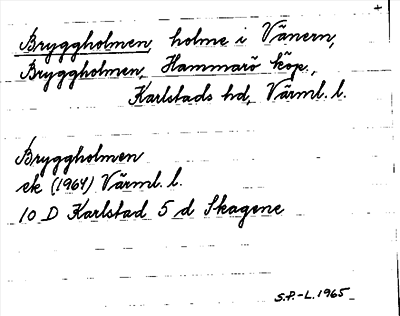 Bryggholmen, holme i Vänern,
Bryggholmen, Hammarö köp.,
Karlstads hd, Värml. l.
Bryggholmen
ek (1964) Värml. l.
10 D Karlstad 5 d Skagene
S.P.-L. 1965